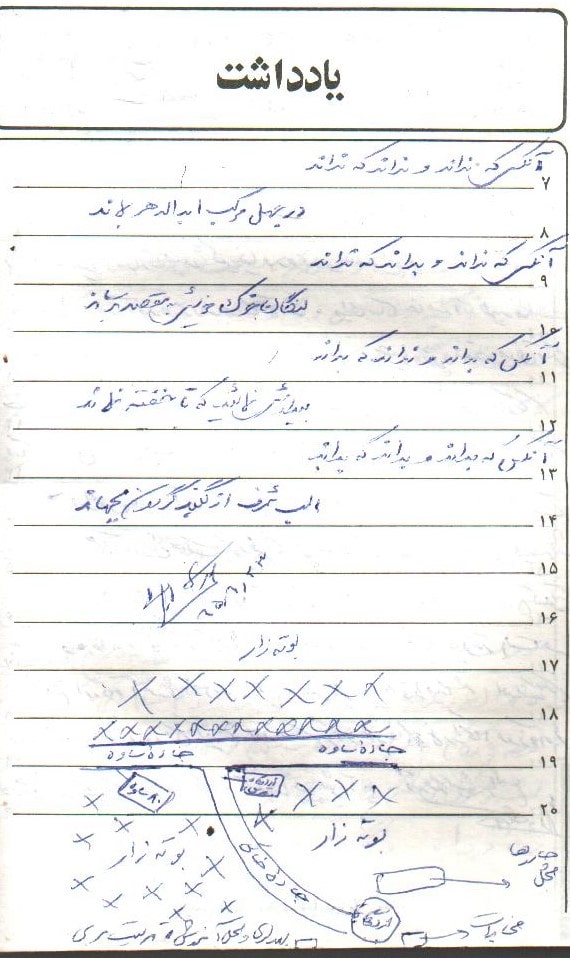 یادداشت
آنکس که نداند و نداند که نداند
۷
در جهل مرکب ابدالدهر بماند
۸
آنکس که نداند و بداند که نداند
۹
لنگان خرک خویش به مقصد برساند
۱۰
آنکس که بداند و نداند که بداند
۱۱
بیدارش نمائید که تا خفته نماند
۱۲
آنکس که بداند و بداند که بداند
۱۳
اسب شرف از گنبد گردون بجهاند
۱۴
۱۵
۱۶
بوته زار
۱۷
۱۸
جاده ساوه جاده ساوه
۱۹
۲۰
بوته زار
بوته زار
جاده خاکی
محل چادرها
اردوگاه